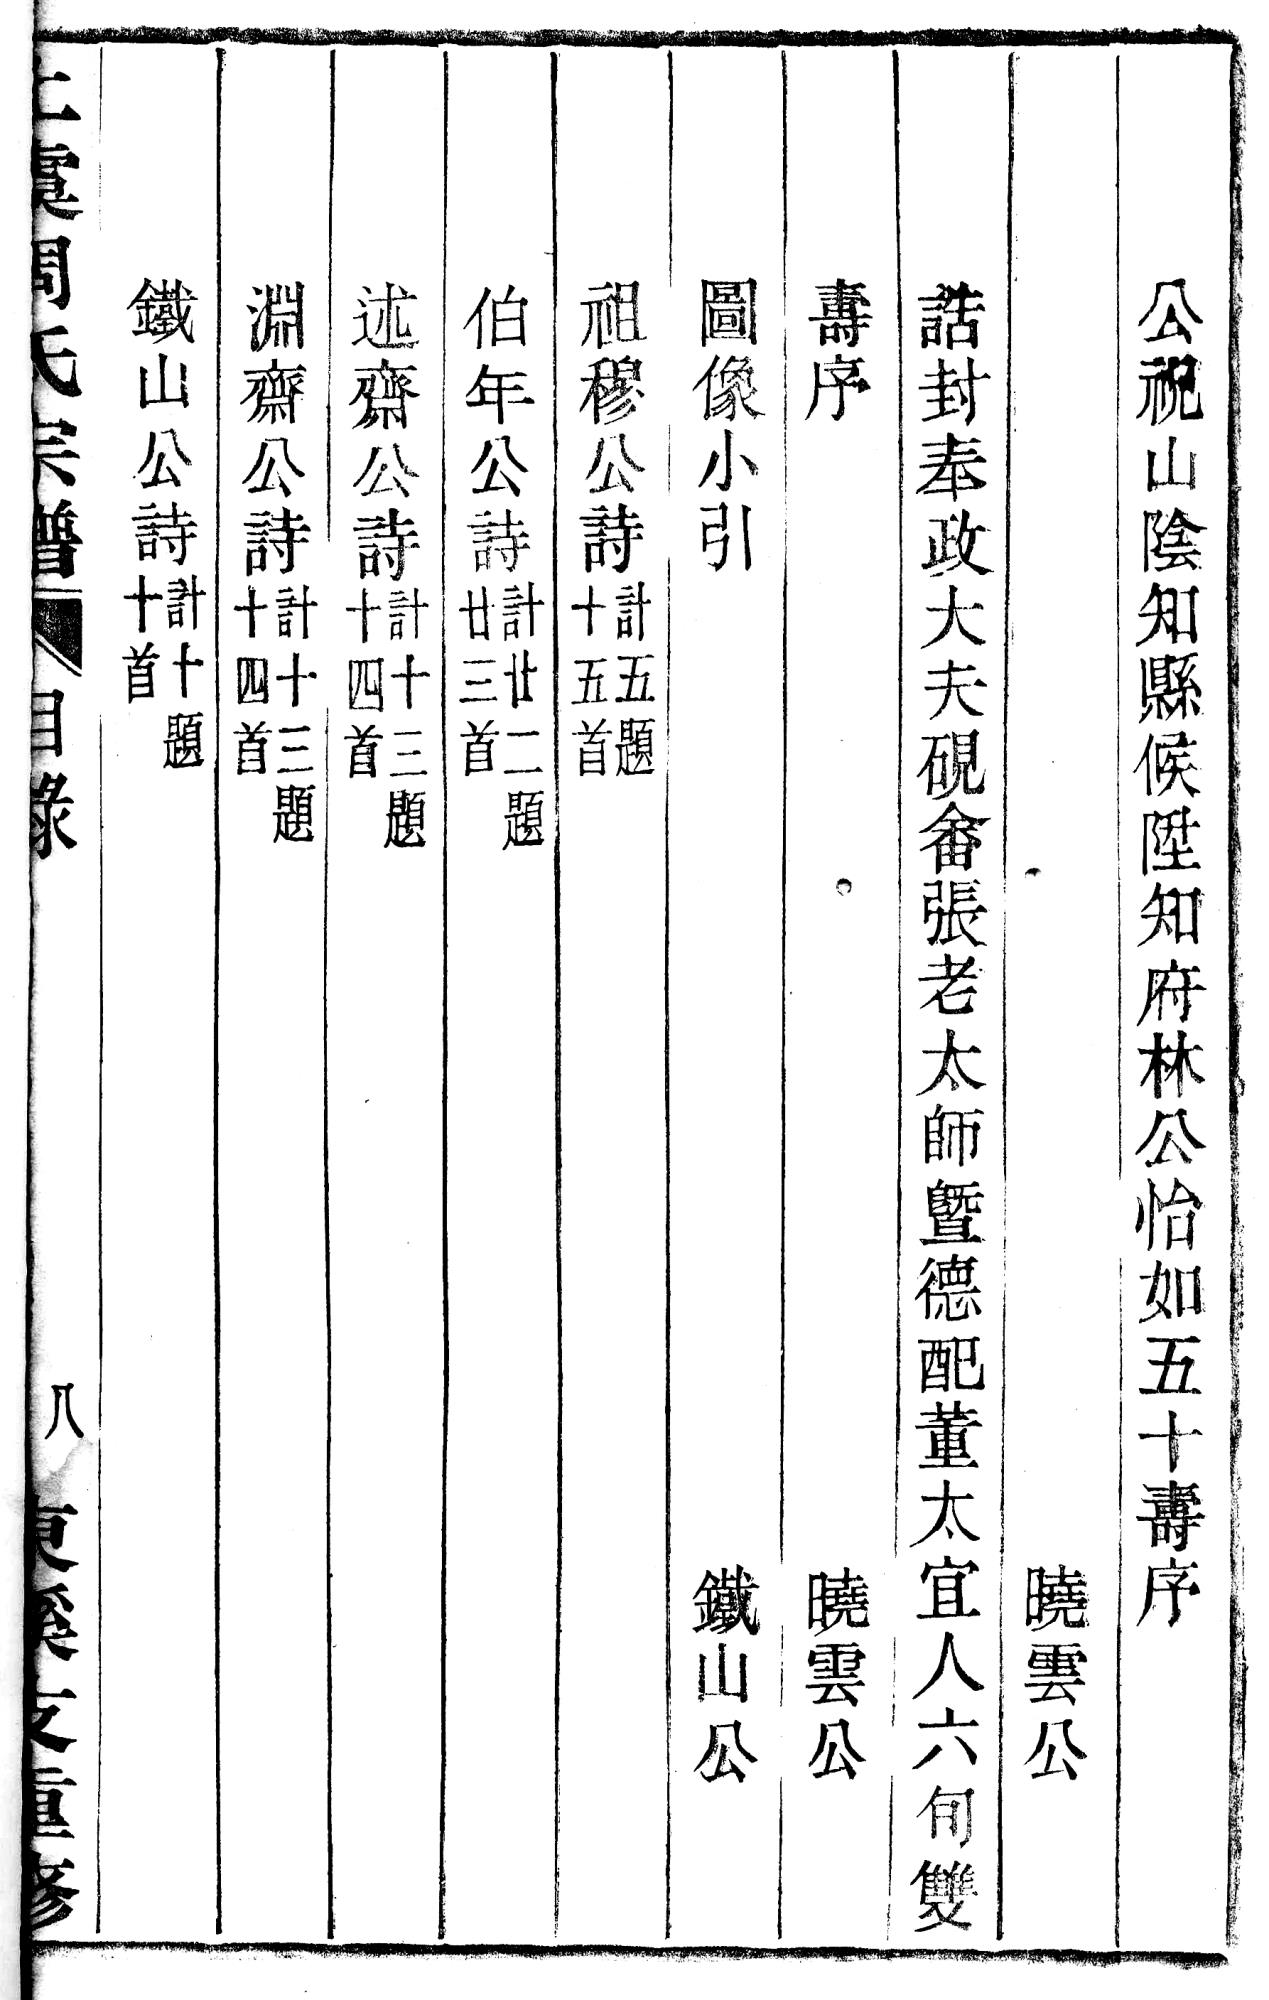 公祝山陰知縣候陞知府林公怡如五十壽序
曉雲公
誥封奉政大夫硯畬張老太師曁德配董太宜人六旬雙
壽序
曉雲公
圖像小引
鐵山公
祖穆公詩計五題十五首
伯年公詩計廿二題廿三首
述齋公詩計十三題十四首
淵齋公詩計十三題十四首
鐵山公詩計十題十首
上虞周氏宗譜
目錄
八
東溪支重修